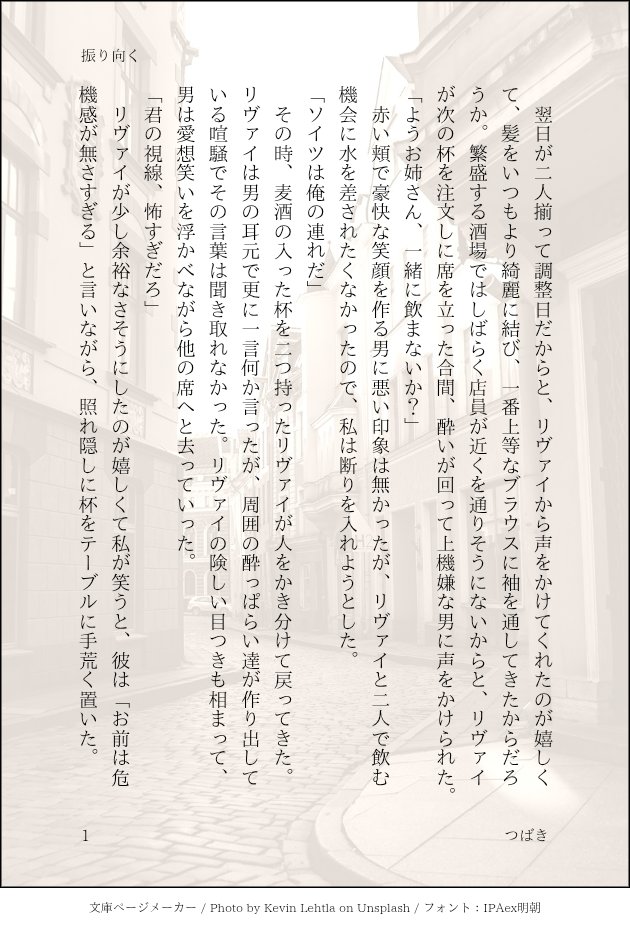 振り向く
　翌日が二人揃って調整日だからと、リヴァイから声をかけてくれたのが嬉しく
て、髪をいつもより綺麗に結び、一番上等なブラウスに袖を通してきたからだろ
うか。繁盛する酒場ではしばらく店員が近くを通りそうにないからと、リヴァイ
が次の杯を注文しに席を立った合間、酔いが回って上機嫌な男に声をかけられた。
「ようお姉さん、一緒に飲まないか？」
　赤い頬で豪快な笑顔を作る男に悪い印象は無かったが、リヴァイと二人で飲む
機会に水を差されたくなかったので、私は断りを入れようとした。
「ソイツは俺の連れだ」
　その時、麦酒の入った杯を二つ持ったリヴァイが人をかき分けて戻ってきた。
リヴァイは男の耳元で更に一言何か言ったが、周囲の酔っぱらい達が作り出して
いる喧騒でその言葉は聞き取れなかった。リヴァイの険しい目つきも相まって、
男は愛想笑いを浮かべながら他の席へと去っていった。
「君の視線、怖すぎだろ」
　リヴァイが少し余裕なさそうにしたのが嬉しくて私が笑うと、彼は「お前は危
機感が無さすぎる」と言いながら、照れ隠しに杯をテーブルに手荒く置いた。
つばき
1
文庫ページメーカー / Photo by Kevin Lehtla on Unsplash / フォント：IPAex明朝